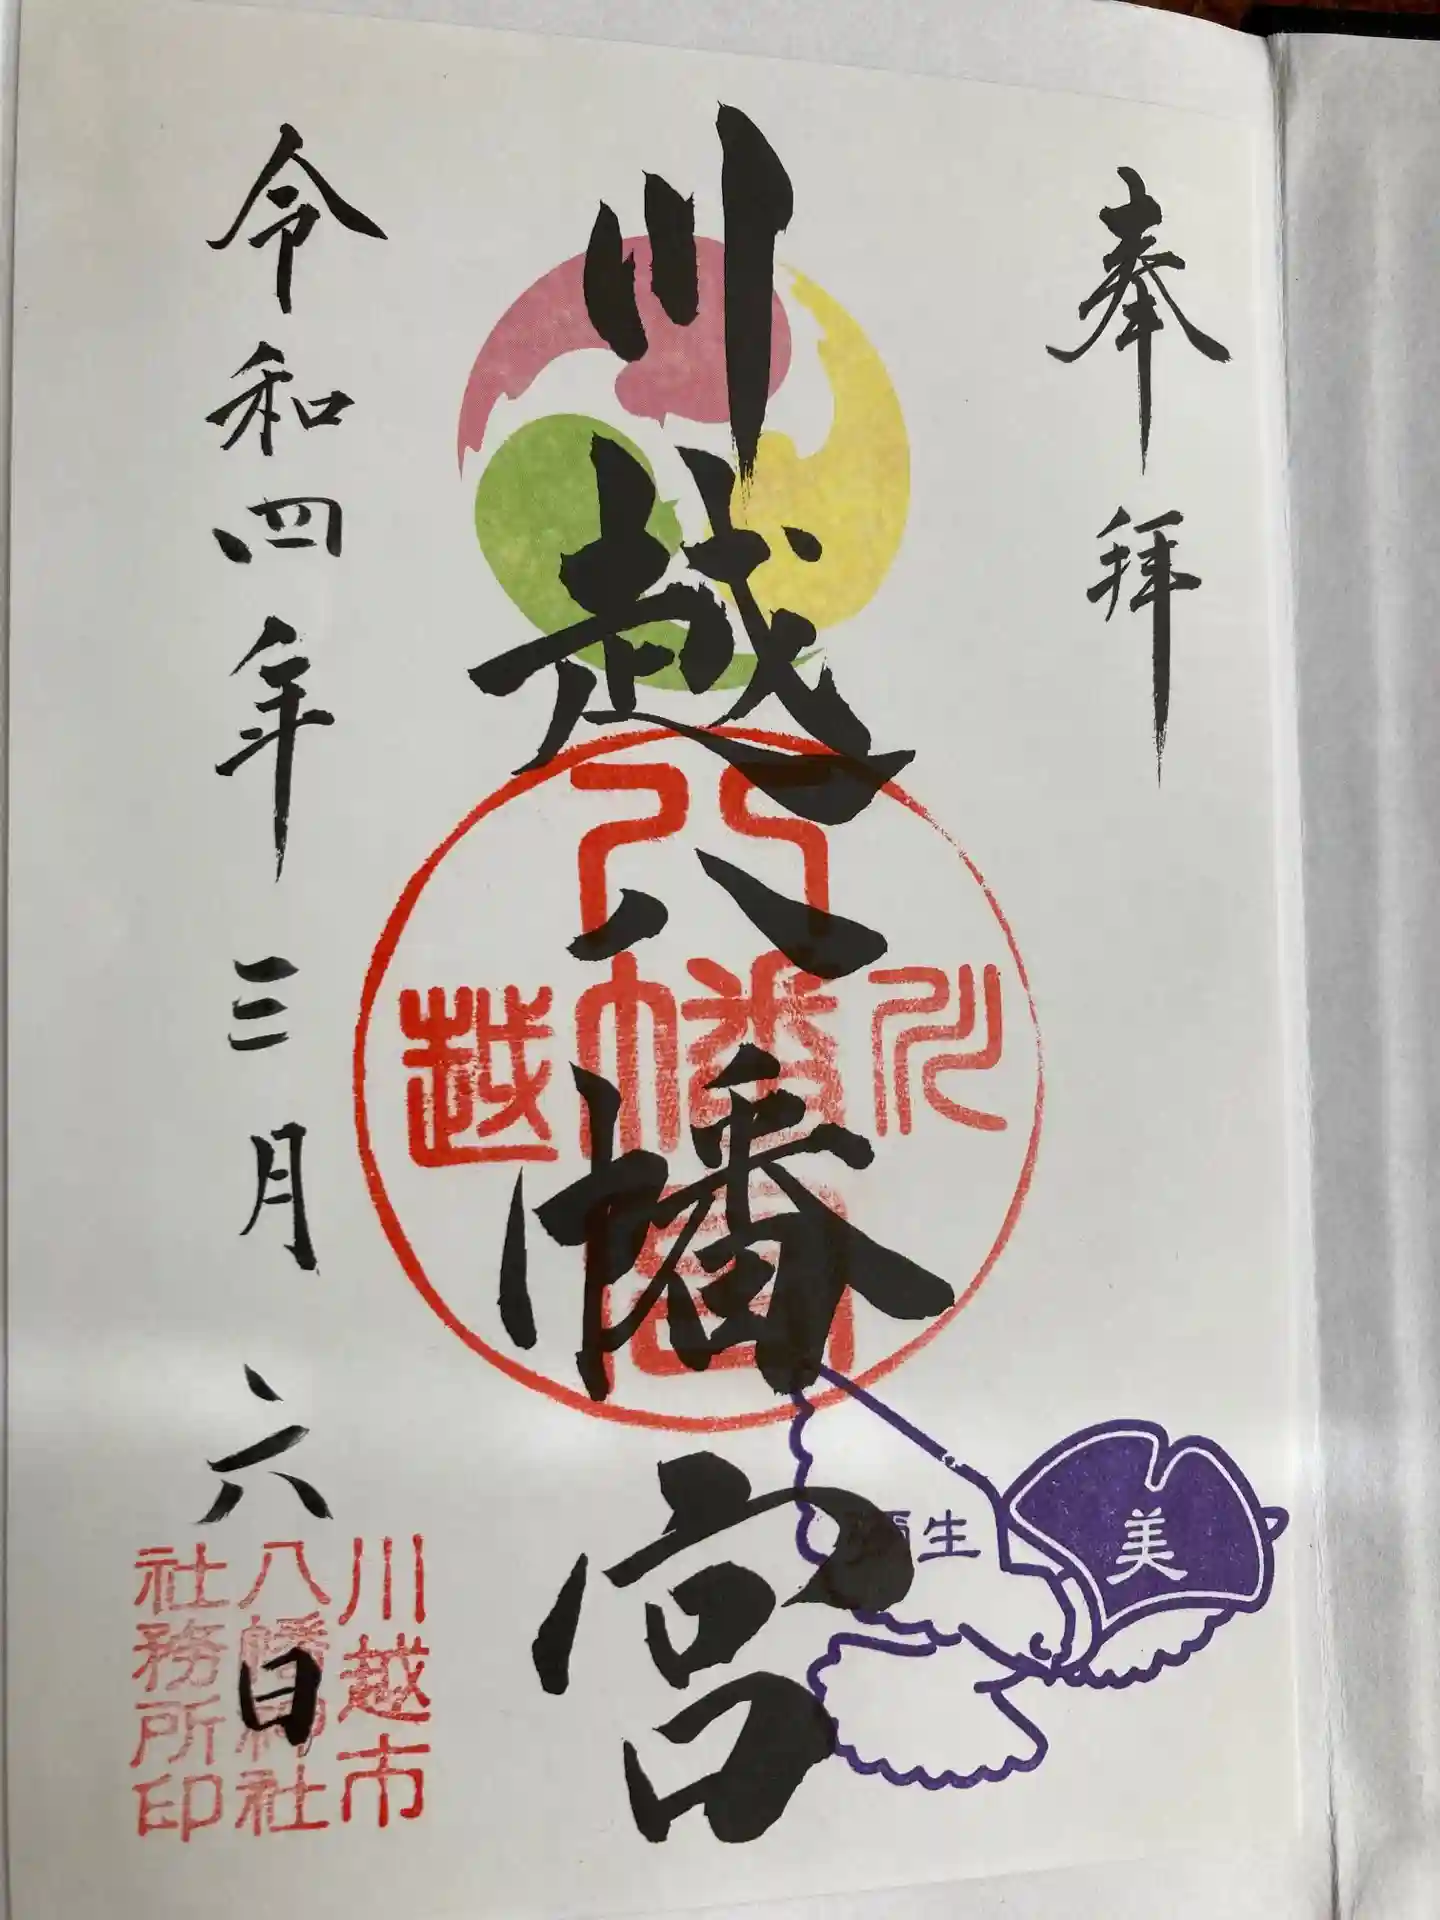 奉拝
川越八幡宮
令和四年三月六日
川越八幡宮
弥生
美
川越市
八幡神社
社務所印